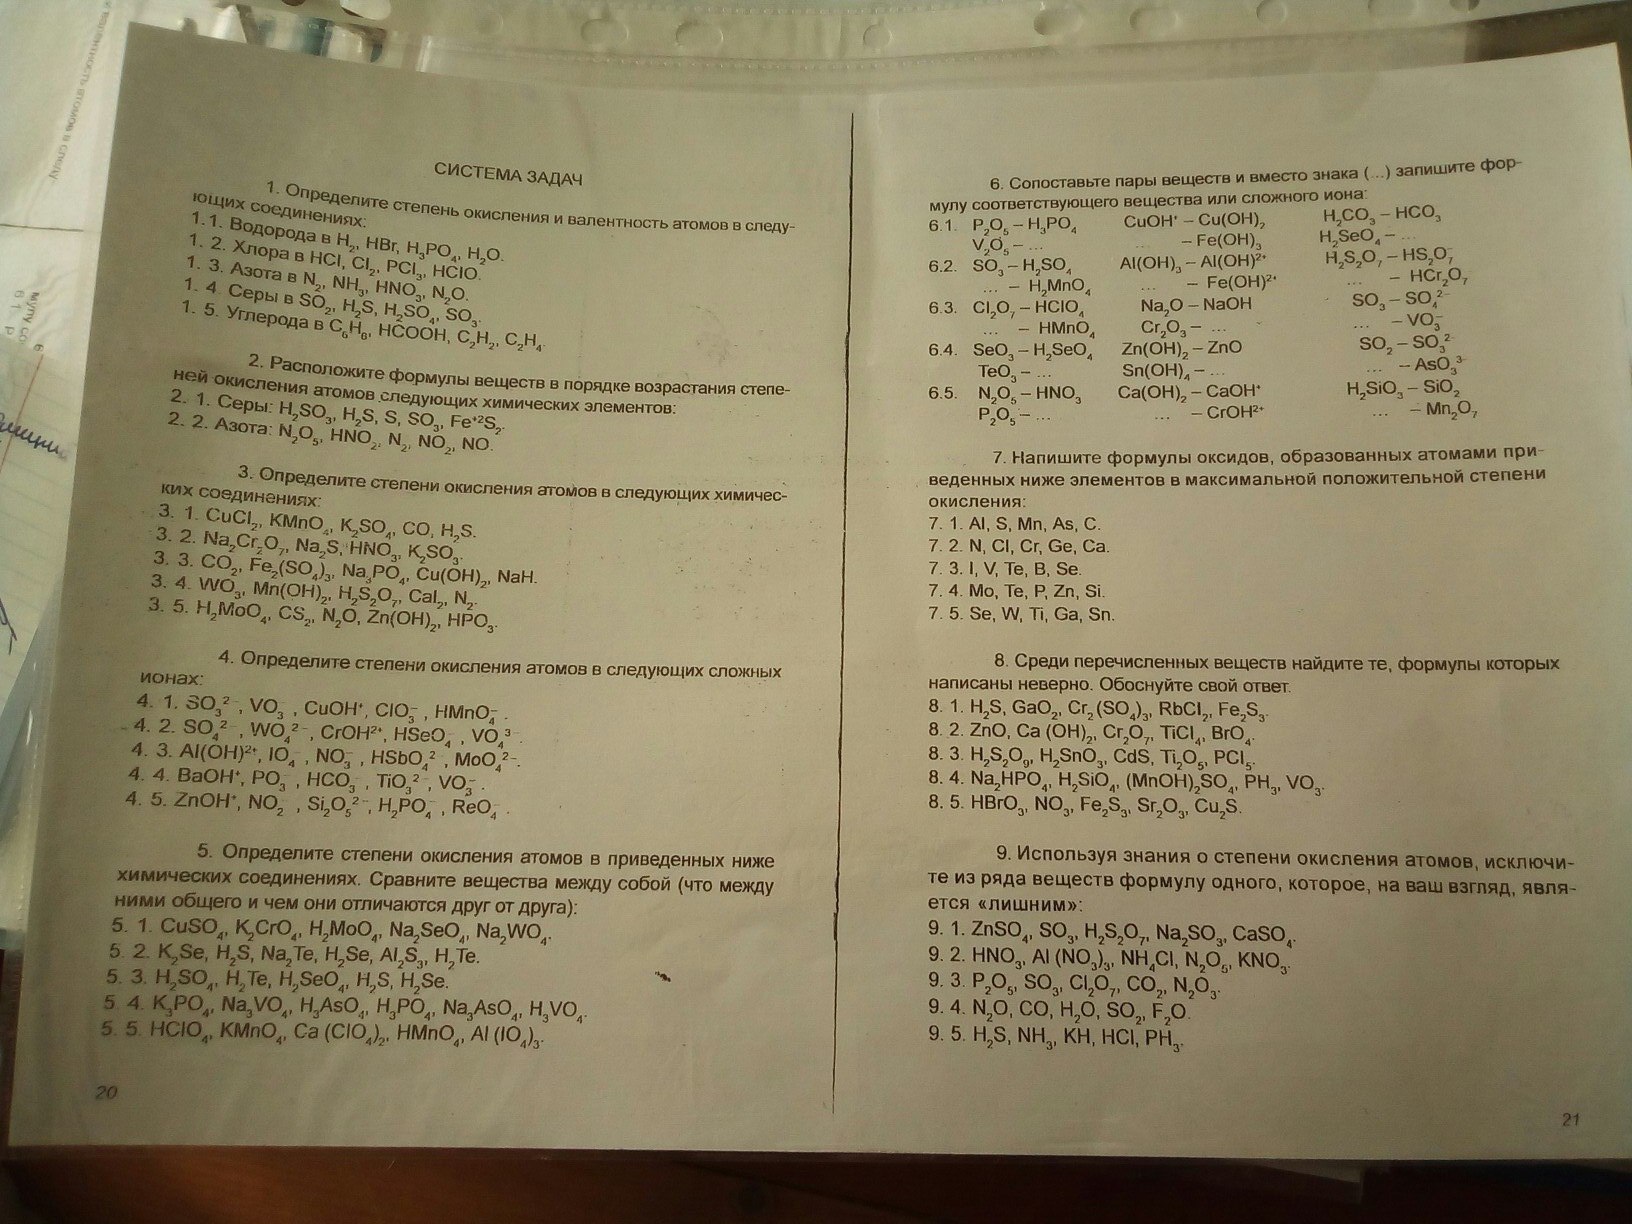 СИСТЕМА ЗАДАЧ
1. Определите степень окисления и валентность атомов в следу-
ющих соединениях:
1.1. Водорода в H₂, HBr, H₃PO₄, H₂O.
1. 2. Хлора в HCl, Cl₂, PCl₃, HClO.
1. 3. Азота в N₂, NH₃, HNO₃, N₂O.
1. 4. Серы в SO₂, H₂S, H₂SO₄, SO₃.
1. 5. Углерода в C₆H₆, HCOOH, C₂H₂, C₂H₄.
2. Расположите формулы веществ в порядке возрастания степе-
ней окисления атомов следующих химических элементов:
2. 1. Серы: H₂SO₃, H₂S, S, SO₃, Fe⁺²S₂.
2. 2. Азота: N₂O₅, HNO₂, N₂, NO₂, NO.
3. Определите степени окисления атомов в следующих химичес-
ких соединениях:
3. 1. CuCl₂, KMnO₄, K₂SO₄, CO, H₂S.
3. 2. Na₂Cr₂O₇, Na₂S, HNO₃, K₂SO₃.
3. 3. CO₂, Fe₂(SO₄)₃, Na₃PO₄, Cu(OH)₂, NaH.
3. 4. WO₃, Mn(OH)₂, H₂S₂O₇, CaI₂, N₂.
3. 5. H₂MoO₄, CS₂, N₂O, Zn(OH)₂, HPO₃.
4. Определите степени окисления атомов в следующих сложных
ионах:
4. 1. SO₃²⁻, VO₃⁻, CuOH⁺, ClO₃⁻, HMnO₄⁻.
4. 2. SO₄²⁻, WO₄²⁻, CrOH²⁺, HSeO₄⁻, VO₄³⁻.
4. 3. Al(OH)²⁺, IO₄⁻, NO₃⁻, HSbO₄²⁻, MoO₄²⁻.
4. 4. BaOH⁺, PO₃⁻, HCO₃⁻, TiO₃²⁻, VO₃⁻.
4. 5. ZnOH⁺, NO₂⁻, Si₂O₅²⁻, H₂PO₄⁻, ReO₄⁻.
5. Определите степени окисления атомов в приведенных ниже
химических соединениях. Сравните вещества между собой (что между
ними общего и чем они отличаются друг от друга):
5. 1. CuSO₄, K₂CrO₄, H₂MoO₄, Na₂SeO₄, Na₂WO₄.
5. 2. K₂Se, H₂S, Na₂Te, H₂Se, Al₂S₃, H₂Te.
5. 3. H₂SO₄, H₂Te, H₂SeO₄, H₂S, H₂Se.
5. 4. K₃PO₄, Na₃VO₄, H₃AsO₄, H₃PO₄, Na₃AsO₄, H₃VO₄.
5. 5. HClO₄, KMnO₄, Ca (ClO₄)₂, HMnO₄, Al (IO₄)₃.
20
6. Сопоставьте пары веществ и вместо знака (...) запишите фор-
мулу соответствующего вещества или сложного иона:
6.1. P₂O₅ – H₃PO₄ CuOH⁺ – Cu(OH)₂ H₂CO₃ – HCO₃
V₂O₅ – ... ... – Fe(OH)₃ H₂SeO₄ – ...
6.2. SO₃ – H₂SO₄ Al(OH)₃ – Al(OH)²⁺ H₂S₂O₇ – HS₂O₇⁻
... – H₂MnO₄ ... – Fe(OH)²⁺ ... – HCr₂O₇
6.3. Cl₂O₇ – HClO₄ Na₂O – NaOH SO₃ – SO₄²⁻
... – HMnO₄ Cr₂O₃ – ... ... – VO₃⁻
6.4. SeO₃ – H₂SeO₄ Zn(OH)₂ – ZnO SO₂ – SO₃²⁻
TeO₃ – ... Sn(OH)₄ – ... ... – AsO₃³⁻
6.5. N₂O₅ – HNO₃ Ca(OH)₂ – CaOH⁺ H₂SiO₃ – SiO₂
P₂O₅ – ... ... – CrOH²⁺ ... – Mn₂O₇
7. Напишите формулы оксидов, образованных атомами при-
веденных ниже элементов в максимальной положительной степени
окисления:
7. 1. Al, S, Mn, As, C.
7. 2. N, Cl, Cr, Ge, Ca.
7. 3. I, V, Te, B, Se.
7. 4. Mo, Te, P, Zn, Si.
7. 5. Se, W, Ti, Ga, Sn.
8. Среди перечисленных веществ найдите те, формулы которых
написаны неверно. Обоснуйте свой ответ.
8. 1. H₂S, GaO₂, Cr₂(SO₄)₃, RbCl₂, Fe₂S₃.
8. 2. ZnO, Ca (OH)₂, Cr₂O₇, TiCl₄, BrO₄.
8. 3. H₂S₂O₉, H₂SnO₃, CdS, Ti₂O₅, PCl₅.
8. 4. Na₂HPO₄, H₂SiO₄, (MnOH)₂SO₄, PH₃, VO₃.
8. 5. HBrO₃, NO₃, Fe₂S₃, Sr₂O₃, Cu₂S.
9. Используя знания о степени окисления атомов, исключи-
те из ряда веществ формулу одного, которое, на ваш взгляд, явля-
ется «лишним»:
9. 1. ZnSO₄, SO₃, H₂S₂O₇, Na₂SO₃, CaSO₄.
9. 2. HNO₃, Al (NO₃)₃, NH₄Cl, N₂O₅, KNO₃.
9. 3. P₂O₅, SO₃, Cl₂O₇, CO₂, N₂O₃.
9. 4. N₂O, CO, H₂O, SO₂, F₂O.
9. 5. H₂S, NH₃, KH, HCl, PH₃.
21